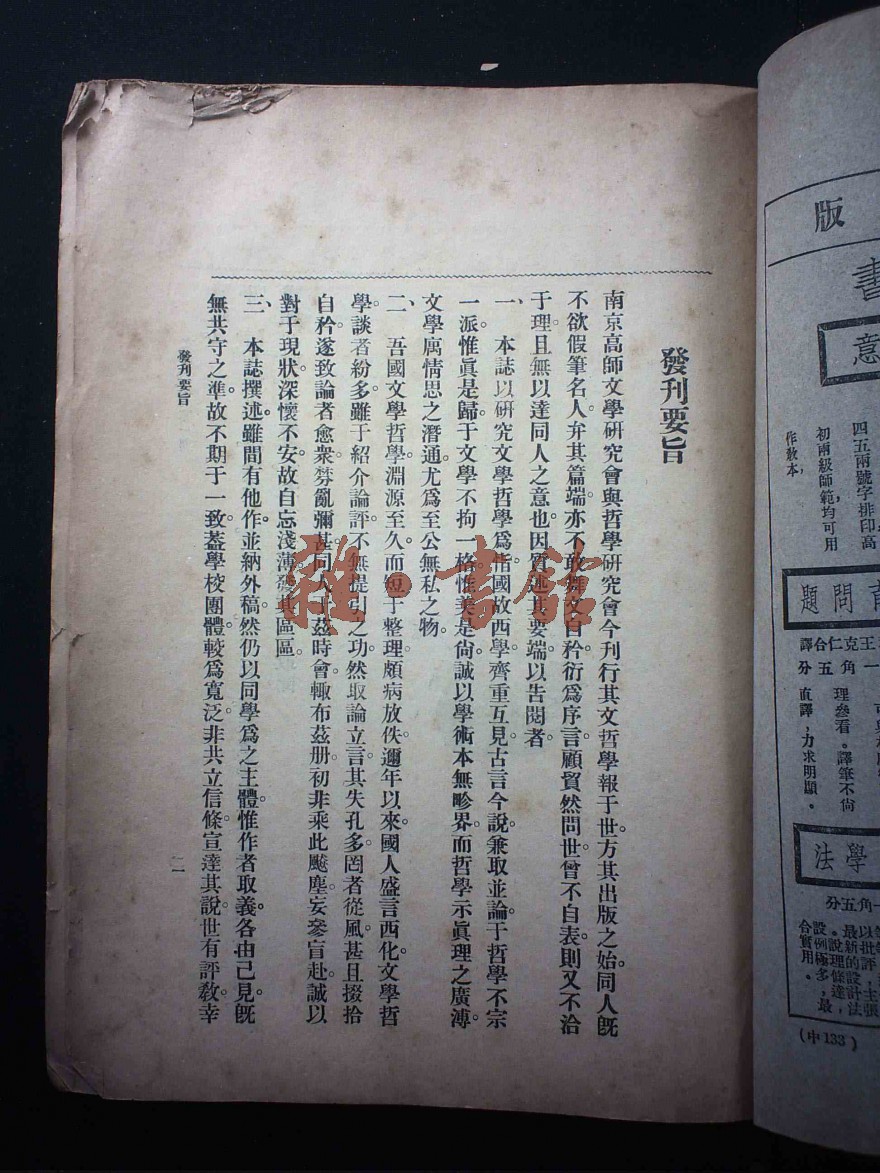 發刊要旨
南京高師文學研究會與哲學研究會今刊行其文哲學報于世。方其出版之始。同人既
不欲假筆名人。弁其篇端。亦不敢舞文自矜。衍爲序言。顧貿然問世。曾不自表。則又不洽
于理。且無以達同人之意也。因質述其要端。以告閱者。
一、本誌以研究文學哲學爲旨。國故西學。齊重互見。古言今說。兼取並論。于哲學不宗
一派。惟眞是歸。于文學不拘一格。惟美是尙。誠以學術本無畛界。而哲學示眞理之廣溥。
文學寓情思之潛通。尤爲至公無私之物。
二、吾國文學哲學。淵源至久。而短于整理。頗病放佚。邇年以來。國人盛言西化。文學哲
學。談者紛多。雖于紹介論評。不無提引之功。然取論立言。其失孔多。罔者從風。甚且掇拾
自矜。遂致論者愈衆。棼亂彌甚。同人于茲時會。輒布茲册。初非乘此颷塵。妄參盲赴。誠以
對于現狀。深懷不安。故自忘淺薄。發其區區。
三、本誌撰述。雖間有他作。並納外稿。然仍以同學爲之主體。惟作者取義。各由己見。既
無共守之準。故不期于一致。蓋學校團體。較爲寬泛。非共立信條。宣達其說。世有評敎。幸
發刊要旨
一
雜·書館
版
書
意
四五兩號字排印，高
初兩級師範均可用
作敎本，
育問題
王克仁合譯
一角五分
理參看。譯筆不尙
直譯，力求明顯。
學法
一角五分
以批評，主張
最新的設計法
。說理條達，
設例極多，最
合實用。
(中133)